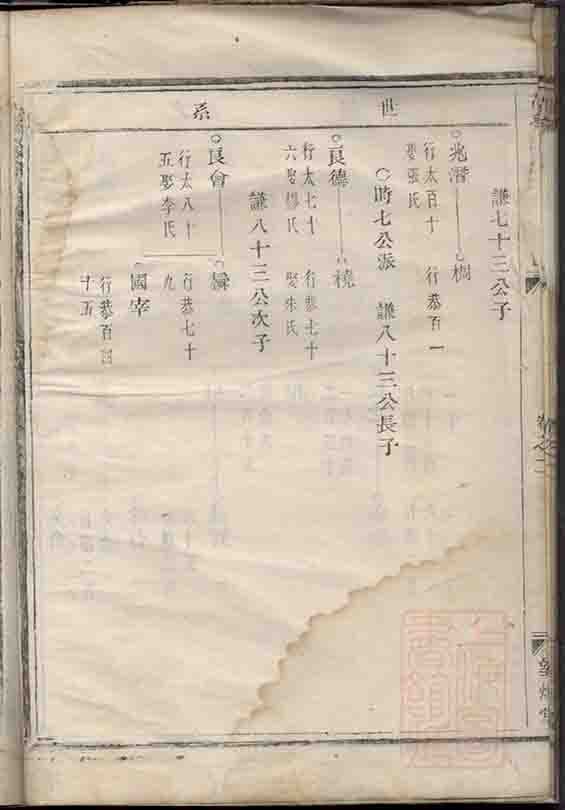 世系
謙七十三公子
兆潛 桐
行太百十 行恭百一
娶張氏
時七公派 謙八十三公長子
良德 橈
行太七十 行恭七十
六娶楊氏 娶朱氏
謙八十三公次子
良會
行太八十 行恭七十
五娶李氏 九
國宰
行恭百四
十五
卷之二